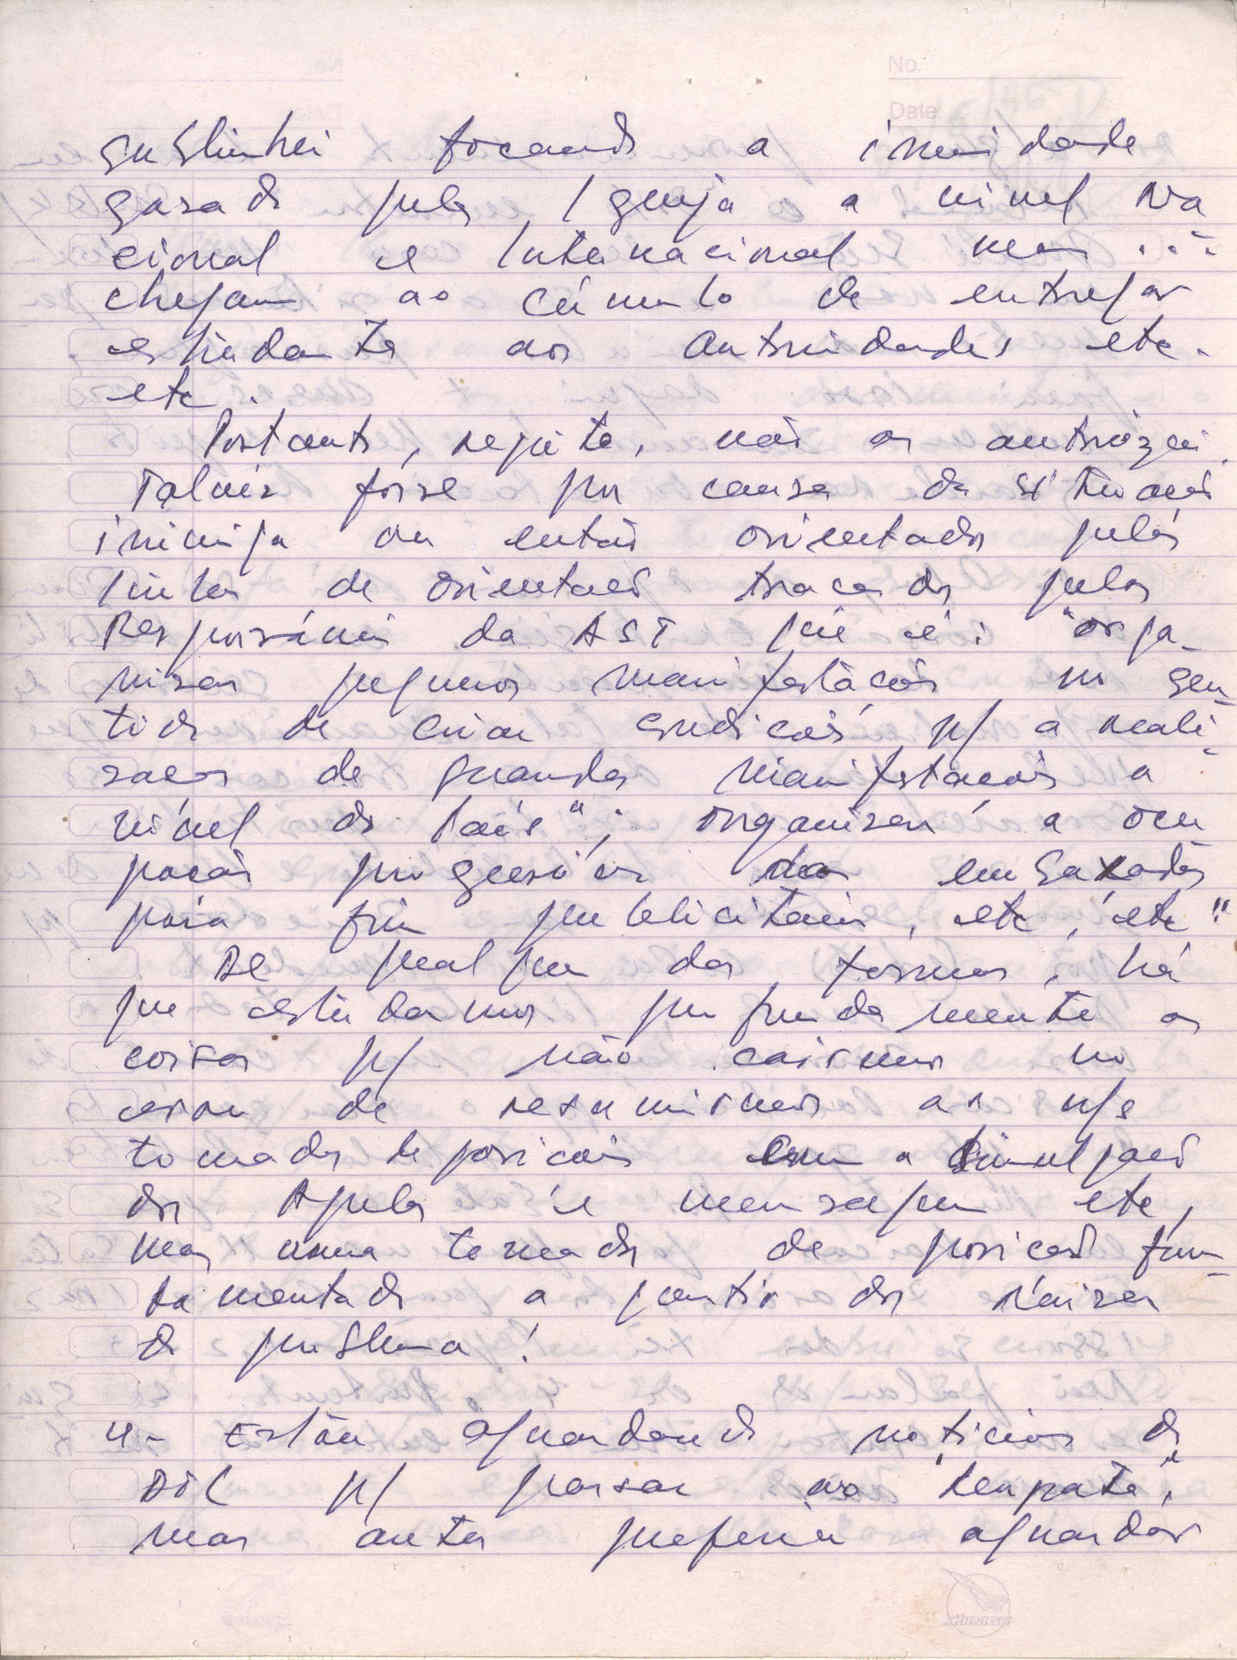 No.
Date
sublinhei focando a imunidade
gozada pela Igreja a nivel Na
cional e Internacional mas ...
chegam ao cúmulo de entregar
estudantes aos autoridades etc.
etc.
Portanto, repito, não os autorizei.
Talvéz fosse por causa da situação
inimiga ou então orientados pelas
linhas de orientação traçados pelos
Responsáveis da AST que é: "orga-
nizar pequenos manifestações no sen-
tido de criar condições p/ a reali-
zação de grandes manifestações a
nível do País"; organizar a ocu
pação progressiva das embaixadas
para fim publicitários, etc, etc".
De qualquer das formas, há
que estudarmos profundamente as
coisas p/ não cairmos no
erro de resumirmos as n/s
tomadas de posições com a divulgação
dos Apelos e mensagem etc,
mas numa tomada de posição fun-
damentada a partir das raizes
do problema!
4- Estão aguardando noticias do
DIL p/ passar ao "empate",
mas antes preferia aguardar